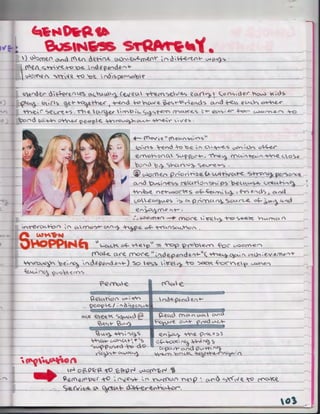 GENDER &
BUSINESS STRATEGY.
1) women and men define achievement in different ways
men strive to be independent
women strive to be indispensable
Gender differences actually reveal themselves early! Consider how kids
play. Girls get together, tend to have best friends and tell each other
their secrets. The larger limbic system makes it easier for women to
bond with other people throughout their lives.
← Movie "mean girls"
Girls tend to be in cliques which offer
emotional support. They maintain the close
bond by sharing secrets
women prioritise & cultivate strong personal
and business relationships because creating
tribe networks of family, friends, and
colleagues is a primary source of joy and
enjoyment.
∴ women → more likely to seek human
interaction in almost any type of transaction.
WHEN
SHOPPING
"Lack of Help" = top problem for women
Male are more "independent" (they gain achievement
through being independent) so less likely to seek for help when
facing problems
Female
Male
Relation with
people /
Independent
Geek Squad @
Best Buy
Read manual and
figure out product
Buy things
that
supposed to do
right away
enjoy the process
of taking things
apart and putting
them back together again
implication
IN ORDER TO GAIN WOMEN $
Remember to invest in human help! and strive to make
Service a great differentiator.
103